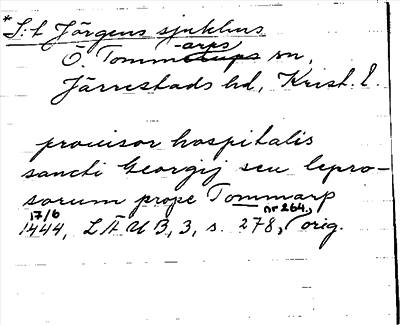 *S:t Jörgens sjukhus
Ö. Tommarps sn,
Järrestads hd, Krist. l.
provisor hospitalis
sancti Georgij seu lepro-
sorum prope Tommarp
17/6 1444, LÄUB, 3, s. 278, nr 264, orig.